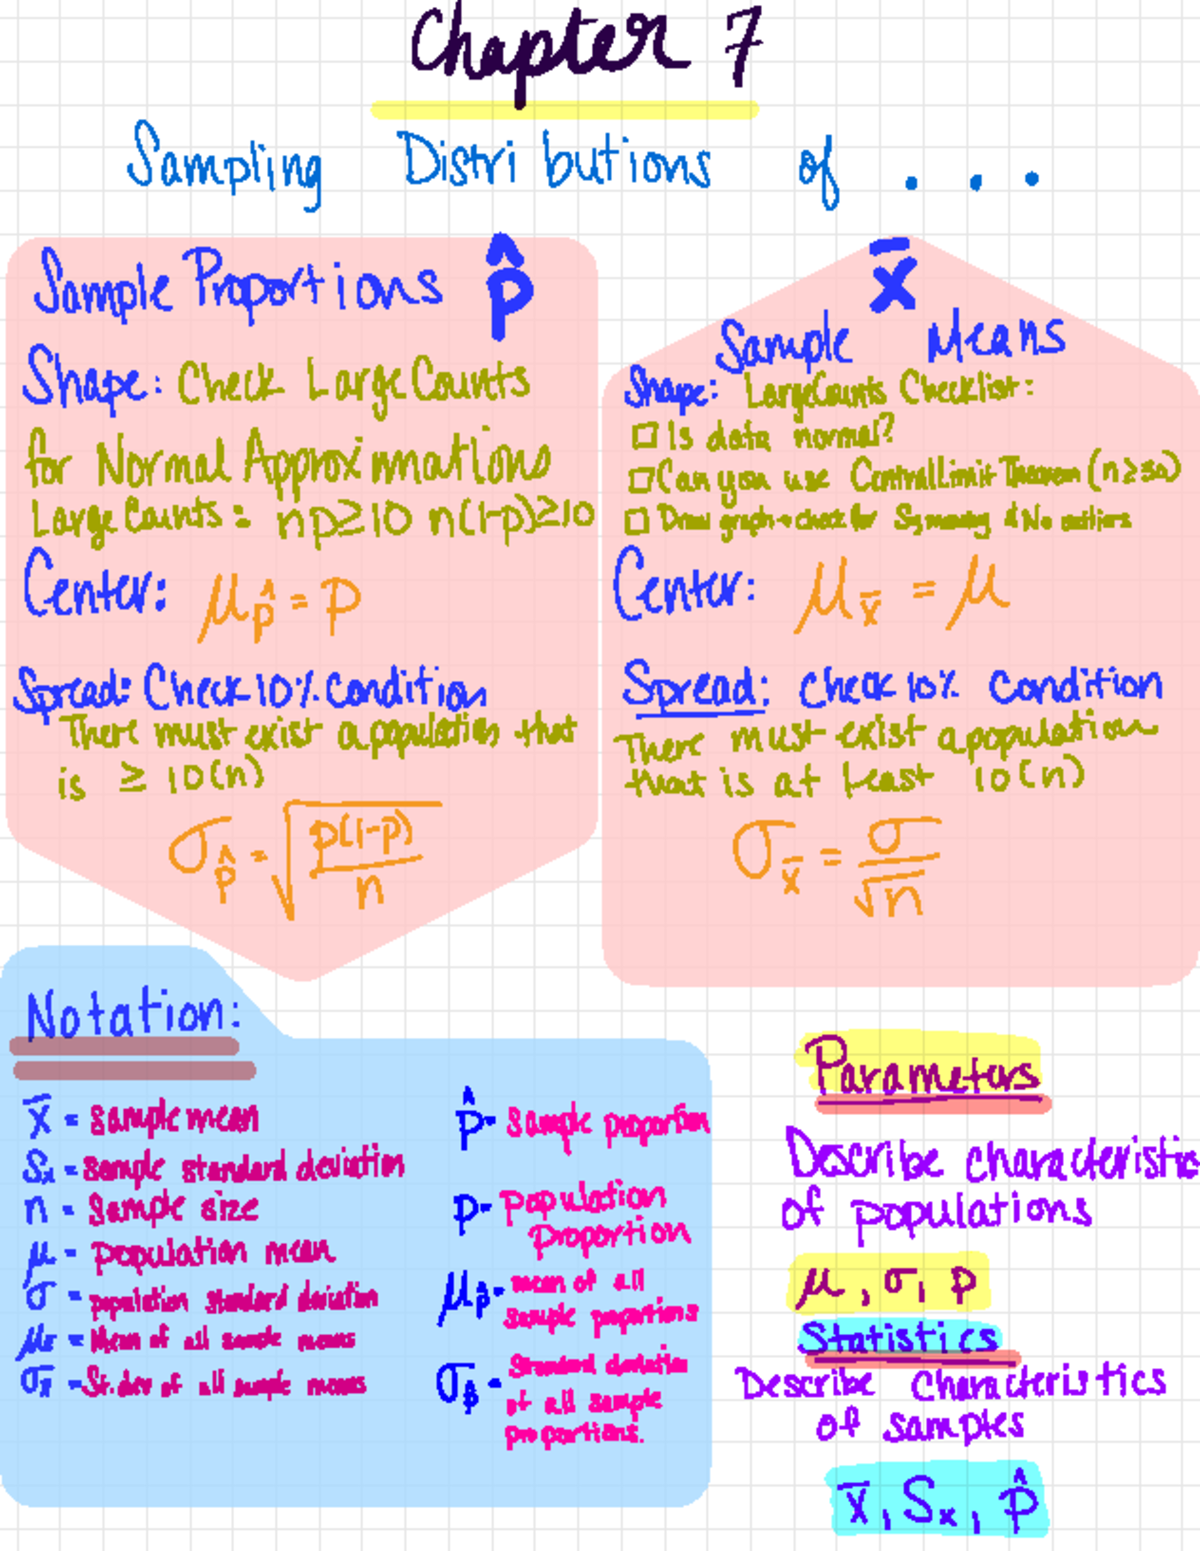 Chapter 7
Sampling Distributions of . . .
Sample Proportions p̂
Shape: Check Large Counts
for Normal Approximations
Large Counts: np≥10 n(1-p)≥10
Center: μp̂ = p
Spread: Check 10% condition
There must exist a population that
is ≥ 10(n)
σp̂ = √(p(1-p)/n)
x̄
Sample Means
Shape: Large Counts Checklist:
□ Is data normal?
□ Can you use Central Limit Theorem (n≥30)
□ Draw graph + check for Symmetry & No outliers
Center: μx̄ = μ
Spread: Check 10% condition
There must exist a population
that is at least 10(n)
σx̄ = σ/√n
Notation:
x̄ = sample mean
Sx = sample standard deviation
n = sample size
μ = population mean
σ = population standard deviation
μx̄ = Mean of all sample means
σx̄ = St. dev of all sample means
p̂ - sample proportion
p - population
proportion
μp̂ - mean of all
sample proportions
σp̂ - Standard deviation
of all sample
proportions.
Parameters
Describe characteristic
of populations
μ, σ, p
Statistics
Describe characteristics
of samples
x̄, Sx, p̂